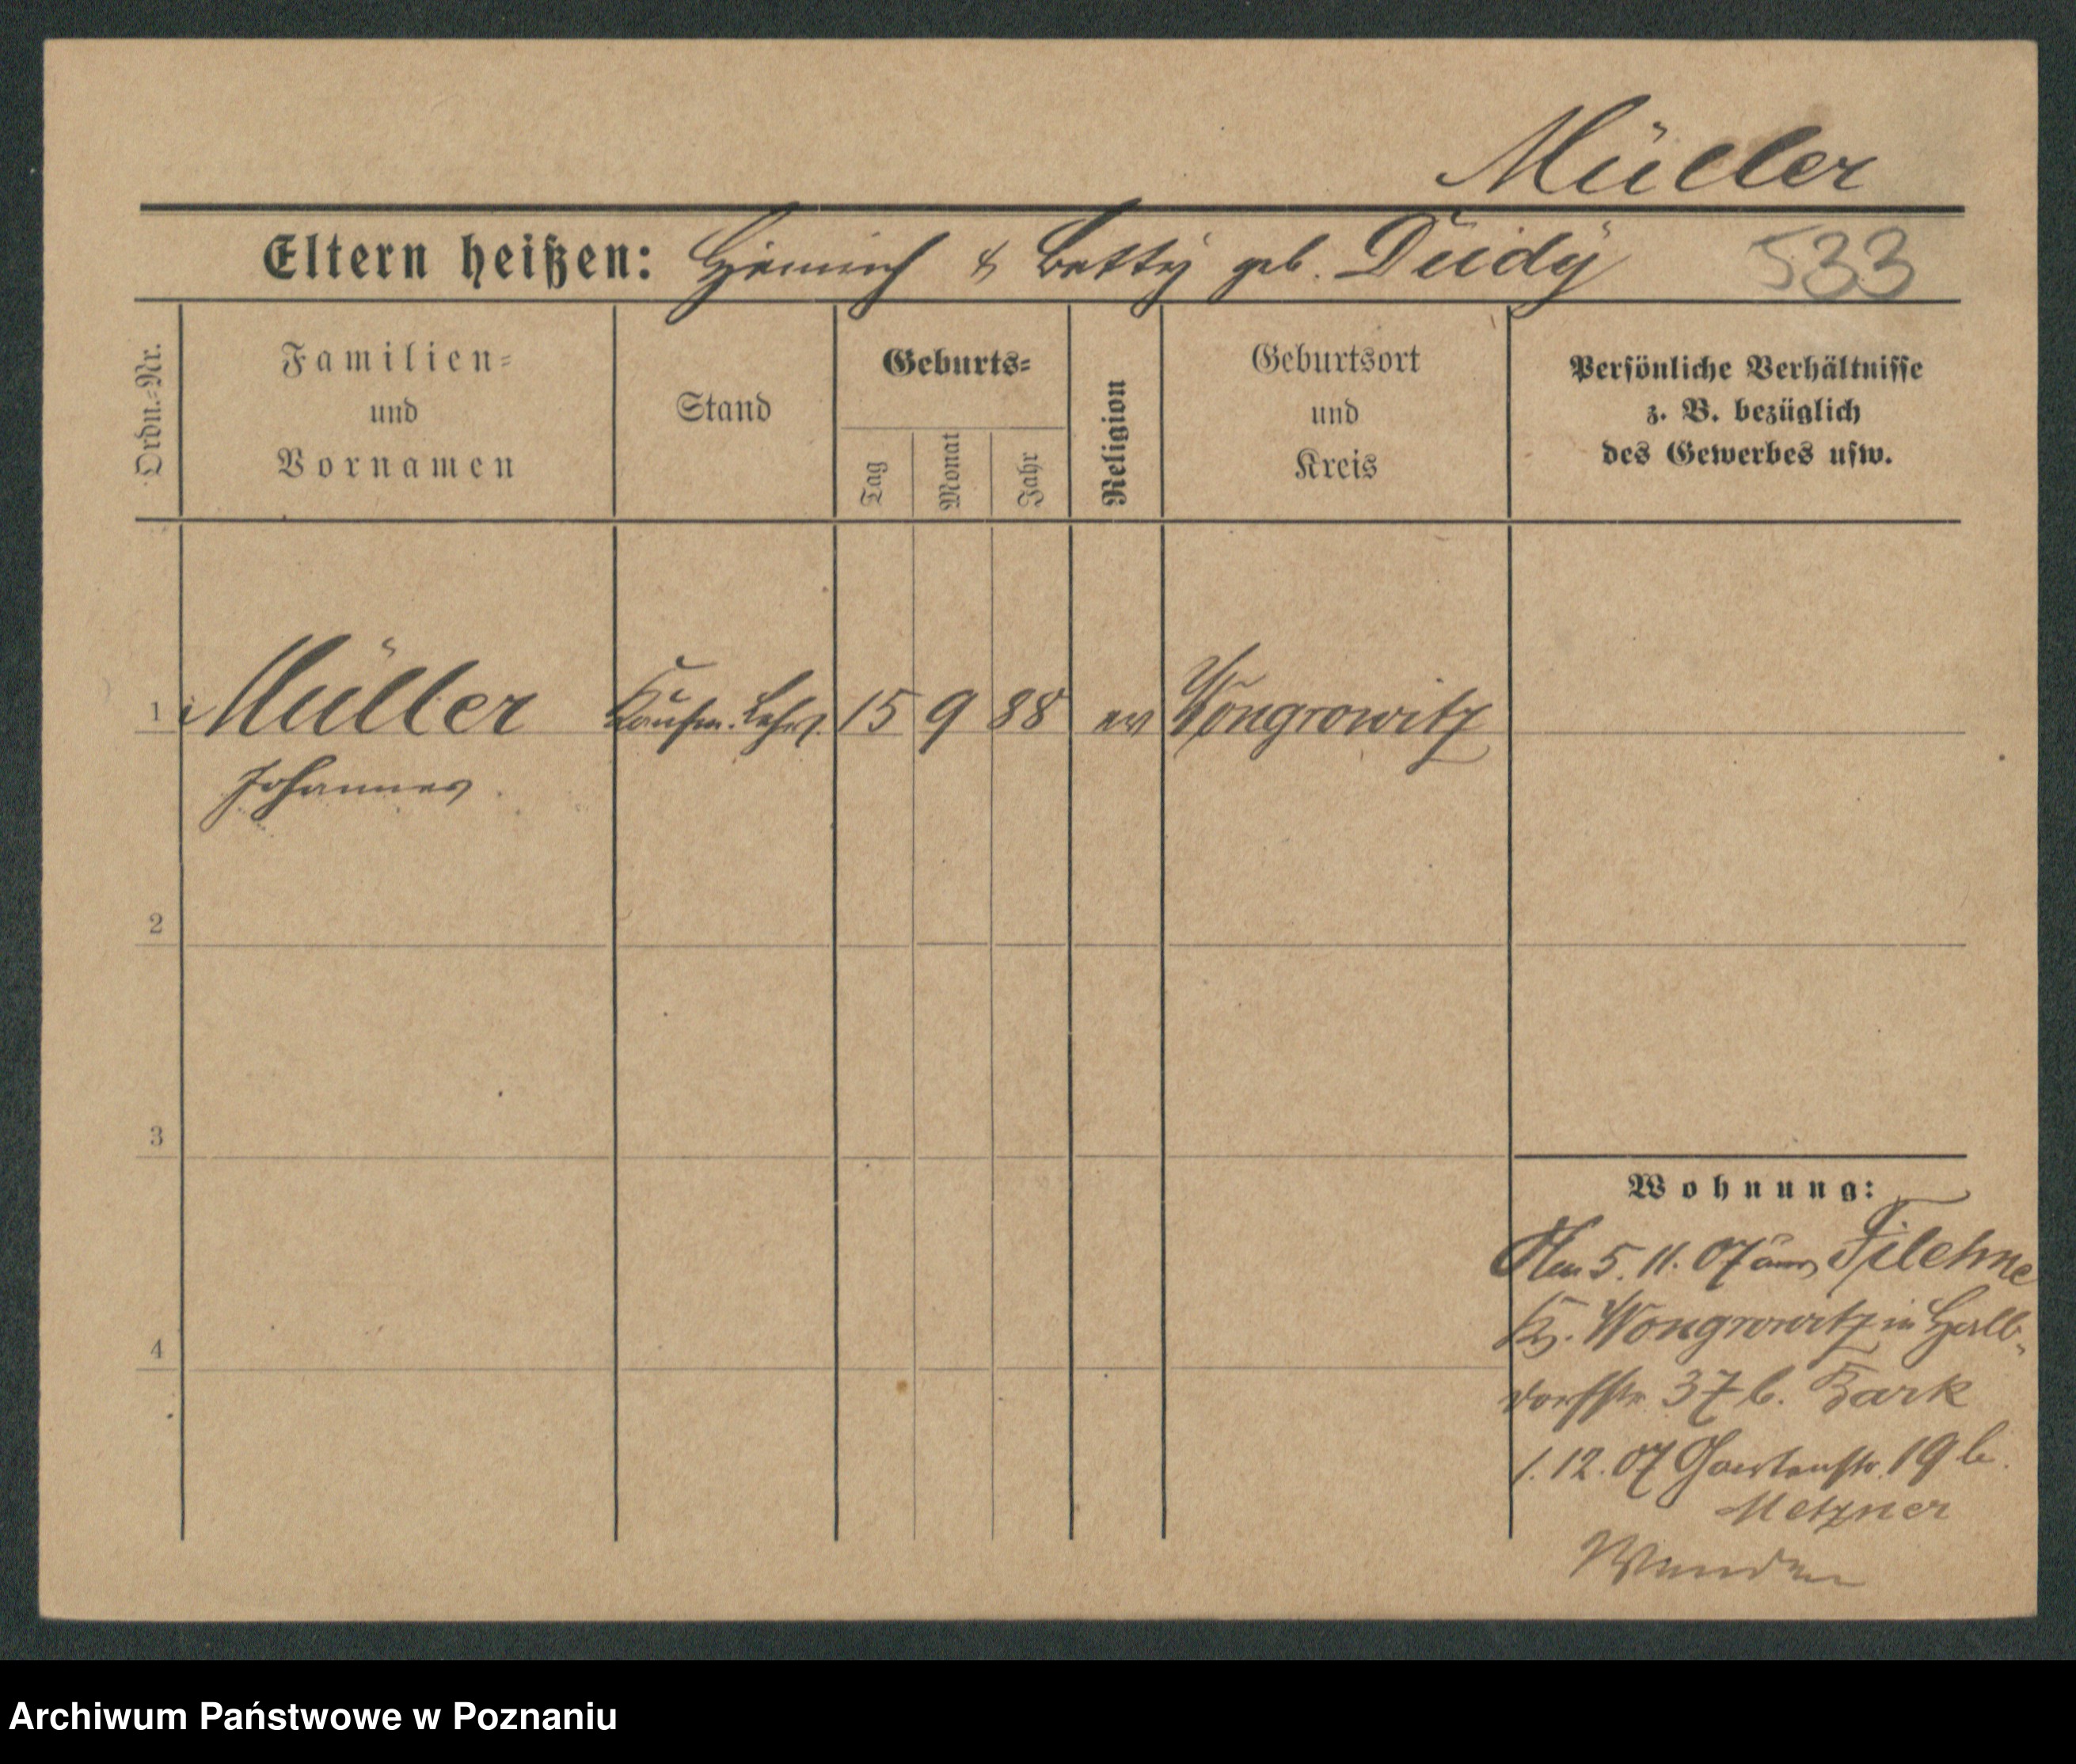 Müller
Eltern heißen: Heinrich & Betty geb. Düdÿ 533
Ordn.-Nr.
Familien-
und
Vornamen
Stand
Geburts-
Tag
Monat
Jahr
Religion
Geburtsort
und
Kreis
Persönliche Verhältnisse
z. B. bezüglich
des Gewerbes usw.
1 Müller Kaufm. Lehrl. 15 9 88 ev Wongrowitz
Johannes
2
3
4
Wohnung:
5. 11. 07 aus Filehne
Kr. Wongrowitz in Halb-
dorfstr 37 b. Bark
1. 12. 07 Gartenstr. 19 b.
Metzner
Archiwum Państwowe w Poznaniu